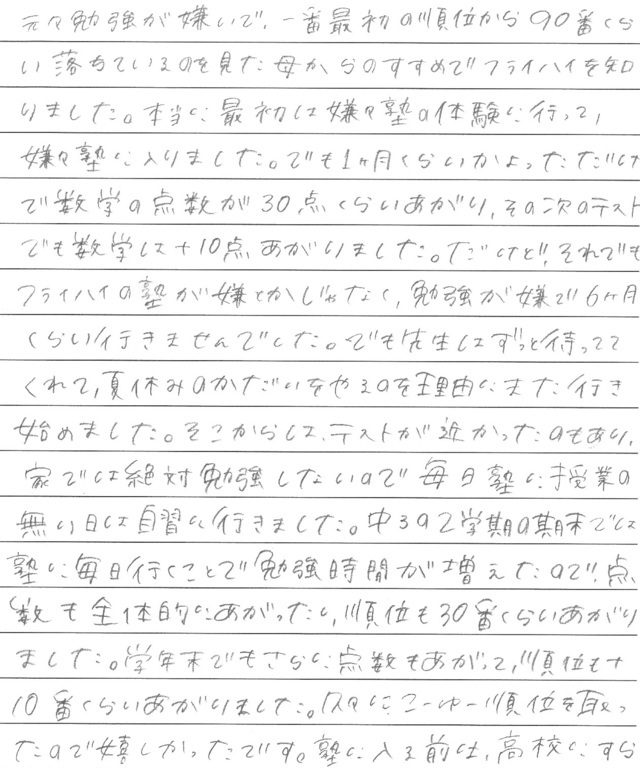 元々勉強が嫌いで、一番最初の順位から90番くら
い落ちているのを見た母からのすすめでフライハイを知
りました。本当に最初は嫌々塾の体験に行って、
嫌々塾に入りました。でも1ヶ月くらいかよっただけ
で数学の点数が30点くらいあがり、その次のテスト
でも数学は+10点あがりました。だけど、それでも
フライハイの塾が嫌とかじゃなく、勉強が嫌で6ヶ月
くらい行きませんでした。でも先生はずっと待ってて
くれて、夏休みのかだいをやるのを理由にまた行き
始めました。そこからは、テストが近かったのもあり、
家では絶対勉強しないので毎日塾に授業の
無い日は自習に行きました。中3の2学期の期末では
塾に毎日行くことで勉強時間が増えたので、点
数も全体的にあがったし、順位も30番くらいあがり
ました。学年末でもさらに点数もあがって、順位も+
10番くらいあがりました。久々にこーゆー順位を取っ
たので嬉しかったです。塾に入る前は、高校にすら